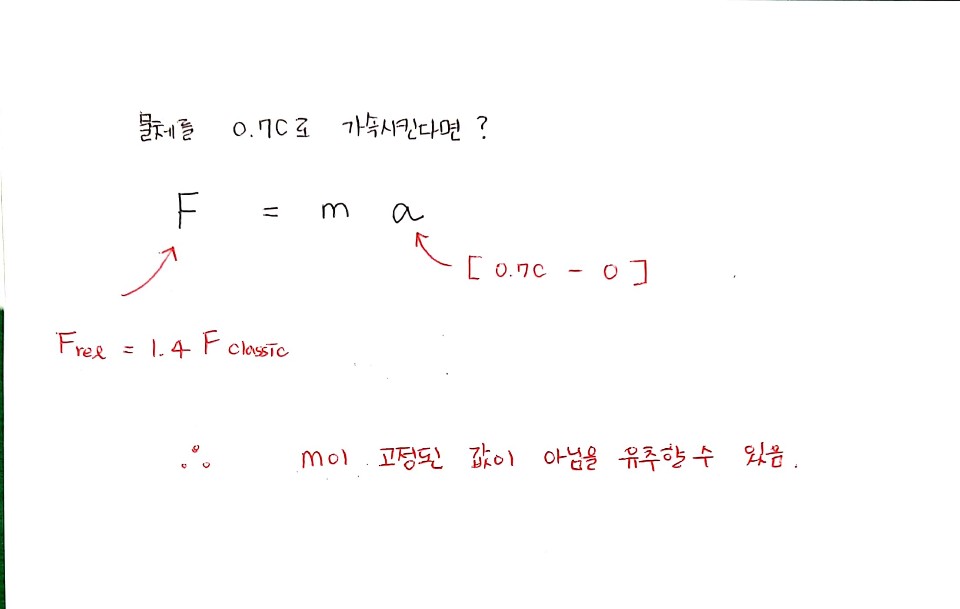 물체를 0.7C로 가속시킨다면?
F = m a
[0.7C - 0]
Frel = 1.4 F classic
∴ m이 고정된 값이 아님을 유추할 수 있음.